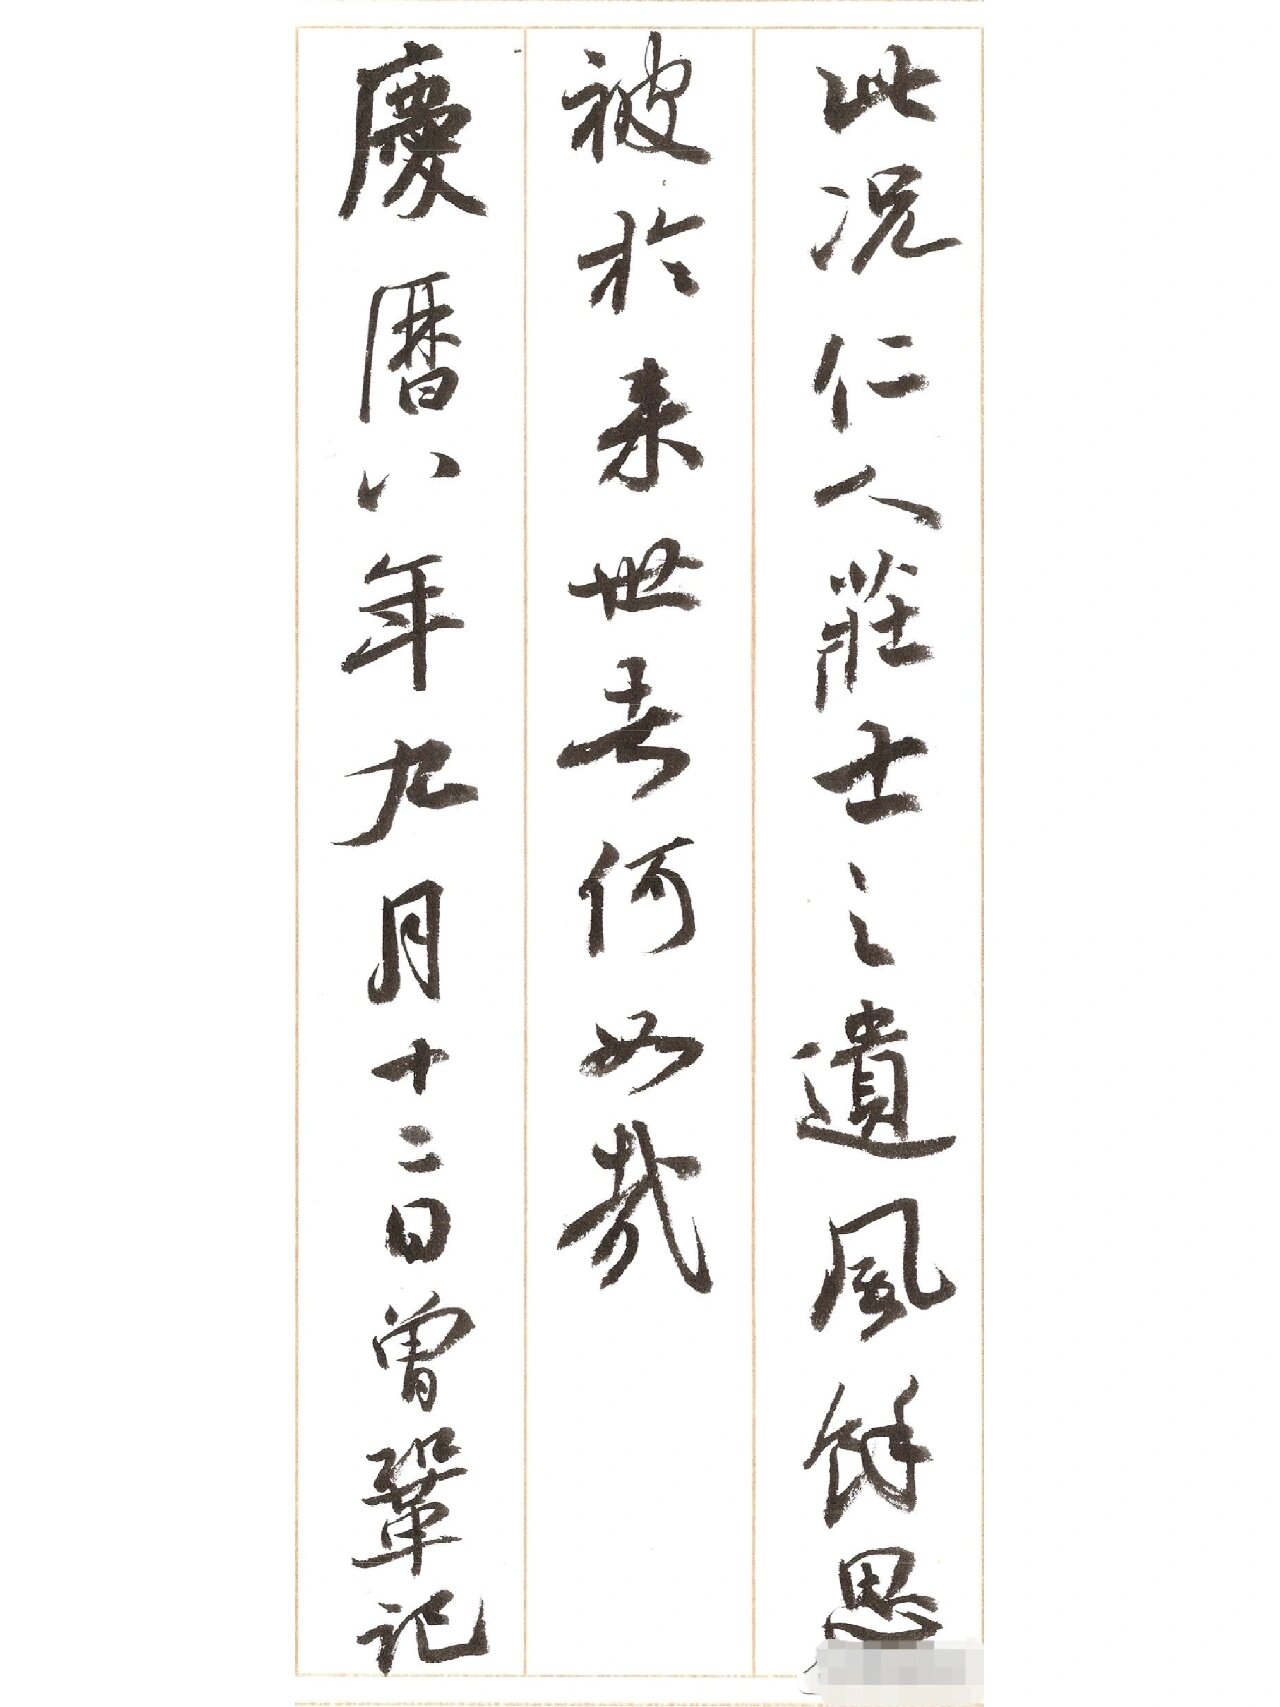 此况仁人莊士之遺風餘思
被於来世者何如哉
慶暦八年九月十二日曾鞏記